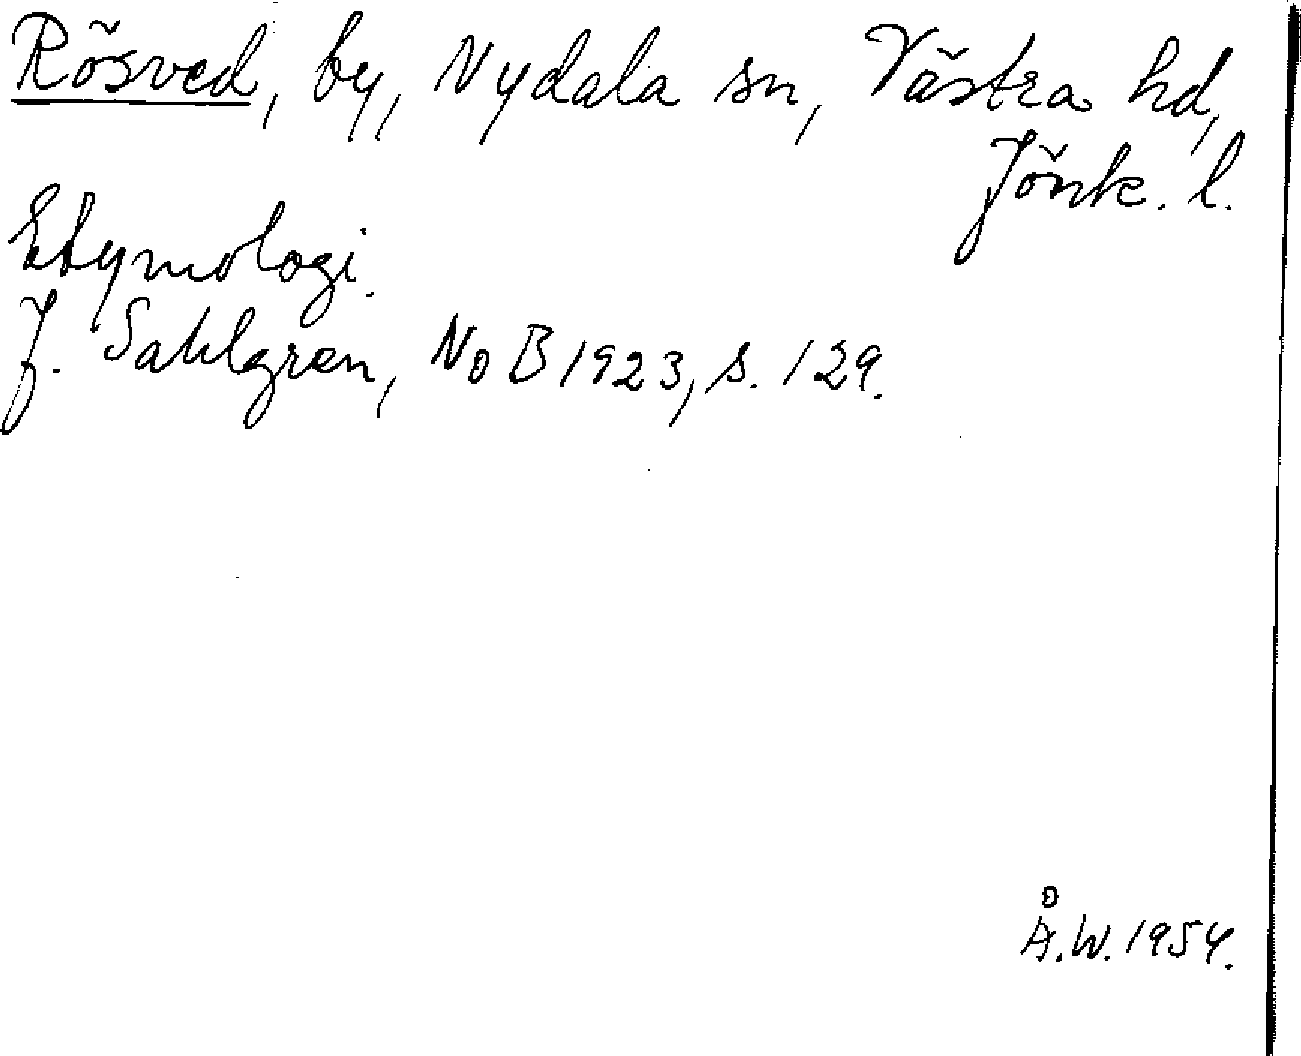 Rösved, by, Nydala sn, Västra hd,
Jönk. l.
Etymologi.
J. Sahlgren, NoB 1923, s. 129.
Å.W. 1954.